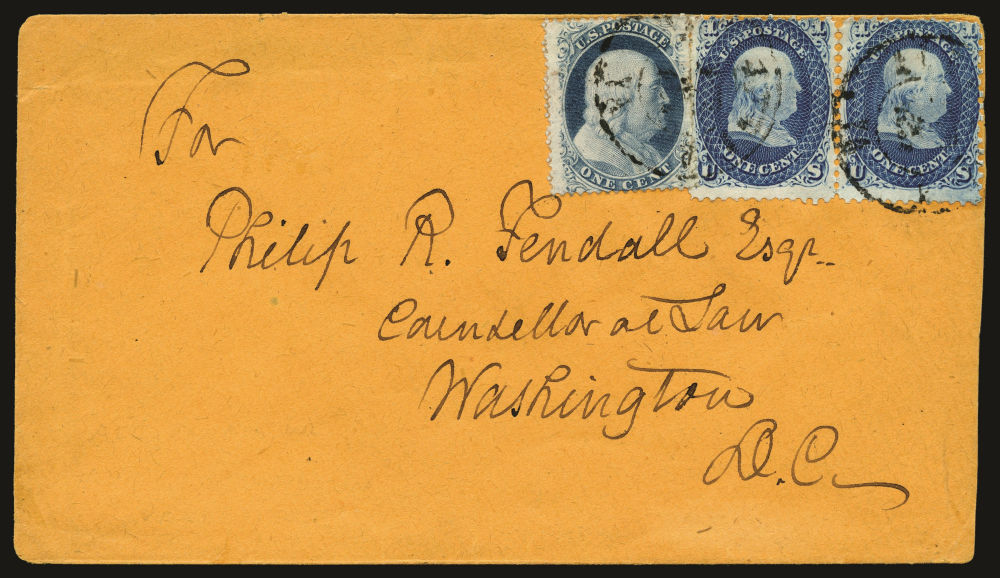 U.S. POSTAGE
ONE CENT
1 1
U.S. POSTAGE
ONE CENT
U S
1 1
U.S. POSTAGE
ONE CENT
U S
For
Philip R. Fendall Esqr.
Counsellor at Law
Washington
D.C.